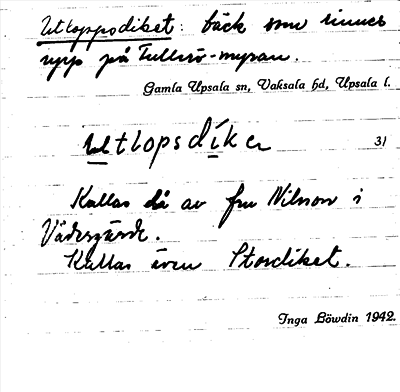 Utloppsdiket: bäck som rinner
upp på Tullsö-myran.
Gamla Upsala sn, Vaksala hd, Upsala l.
Utlopsdíkeṛ 31
Kallas då av fru Nilsson i
Vädersgärde.
Kallas även Stordiket.
Inga Löwdin 1942.